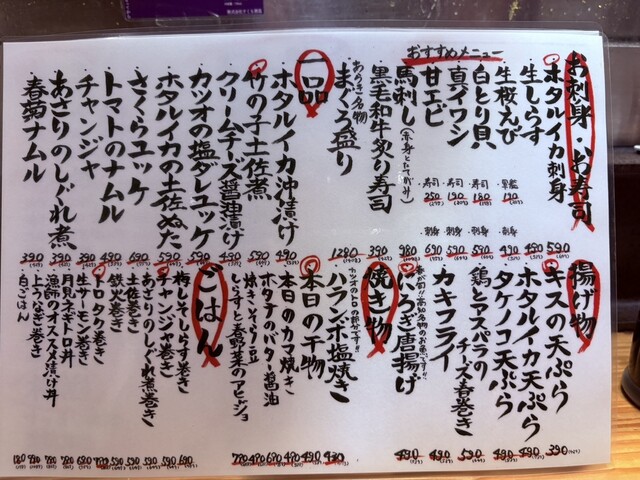 おすすめメニュー
お刺身・お寿司
ホタルイカ刺身 590
生しらす 490
生桜えび 軍艦 190 刺身 490
白とり貝 寿司 180 刺身 590
真イワシ 寿司 190 刺身 590
甘エビ 寿司 250 刺身 690
馬刺し 980
黒毛和牛炙り寿司 390
まぐろ盛り 1280
一品
ホタルイカ沖漬け 490
竹の子土佐煮 590
クリームチーズ醤油漬け 490
カツオの塩ダレユッケ
ホタルイカの土佐ぬた 590
さくらユッケ 690
トマトのナムル 490
チャンジャ 390
あさりのしぐれ煮 390
春菊ナムル 390
揚げ物
キスの天ぷら 390
ホタルイカ天ぷら 490
タケノコ天ぷら 490
鶏とアスパラのチーズ春巻き 590
カキフライ 490
唐揚げ 490
焼き物
カツオのトロの部分です!!
ハランボ塩焼き 430
本日の干物 490
本日のカマ焼き 470
ホタテのバター醤油 670
焼きそら豆 470
しらすと春野菜のアヒージョ 770
ごはん
梅しそしらす巻き 690
チャンジャ巻き 590
あさりのしぐれ煮巻き 590
土佐巻き 590
鉄火巻き 590
トロタク巻き 780
生サーモン巻き 680
月見ネギトロ丼 780
漁師のオススメ漬け丼 780
上うなぎ巻き
白ごはん